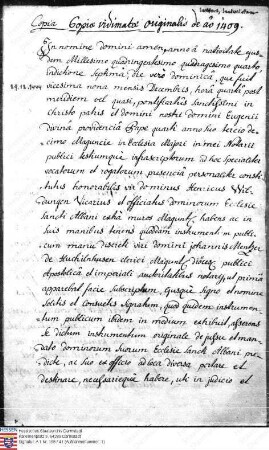 Copia Copiæ vidimatæ originalis de aõ 1409.
In nomine domini amen, anno á nativitate ejus-
dem Millesimo quadringentesimo quadragesimo quarto,
Indictione septima, die vero dominica, quæ fuit
29.12.1444
vicesima nona mensis Decembris, hora quarta post
meridiem vel quasi, pontificatus sanctissimi in
christo patris et domini nostri domini Eugenii
Divina providencia Papæ quarti anno suo
decimo Maguncie in Ecclesia Majori in mei Notarii
publici testiumque infrascriptorum ad hoc specialiter
vocatorum et rogatorum presencia personaliter consti-
tutus honorabilis vir dominus Henricus Wil-
dungen Vicarius et officiatus dominorum Ecclesie
sancti Albani extra muros Magunt. habens ac in
suis manibus tenens quoddam instrumentum publi-
cum manu discreti viri domini Johannis Mentzer
de clerici Magunt. diœces. publici
apostolica et imperiali auctoritatibus notarii, ut prima
apparebat facie subscriptum, ejusque signo et nomine
solitis et consuetis signatum, quod quidem instrumen-
tum publicum ibidem in medium exhibuit, asserens
se dictum instrumentum originale de jussu et man-
dato dominorum suorum Ecclesie sancti Albani pre-
dicte, ac suo ex officio ad loca diversa portare et
destinare, necessarieque habere, ut in judicio et